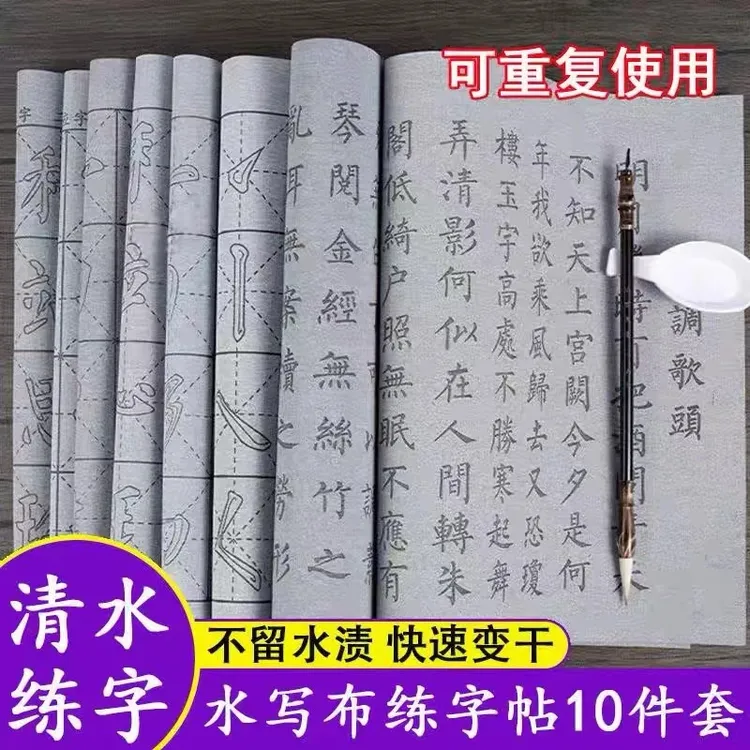 可重复使用
調歌頭
明月時有把酒問
不知天上宮闕今夕是何
年我欲乘風歸去又恐瓊
樓玉宇高處不勝寒起舞
弄清影何似在人間轉朱
閣低綺户照無眠不應有
琴閱金經無絲竹之
亂耳無案牘之勞形
字
字
清水
练字
不留水渍 快速变干
水写布练字帖10件套